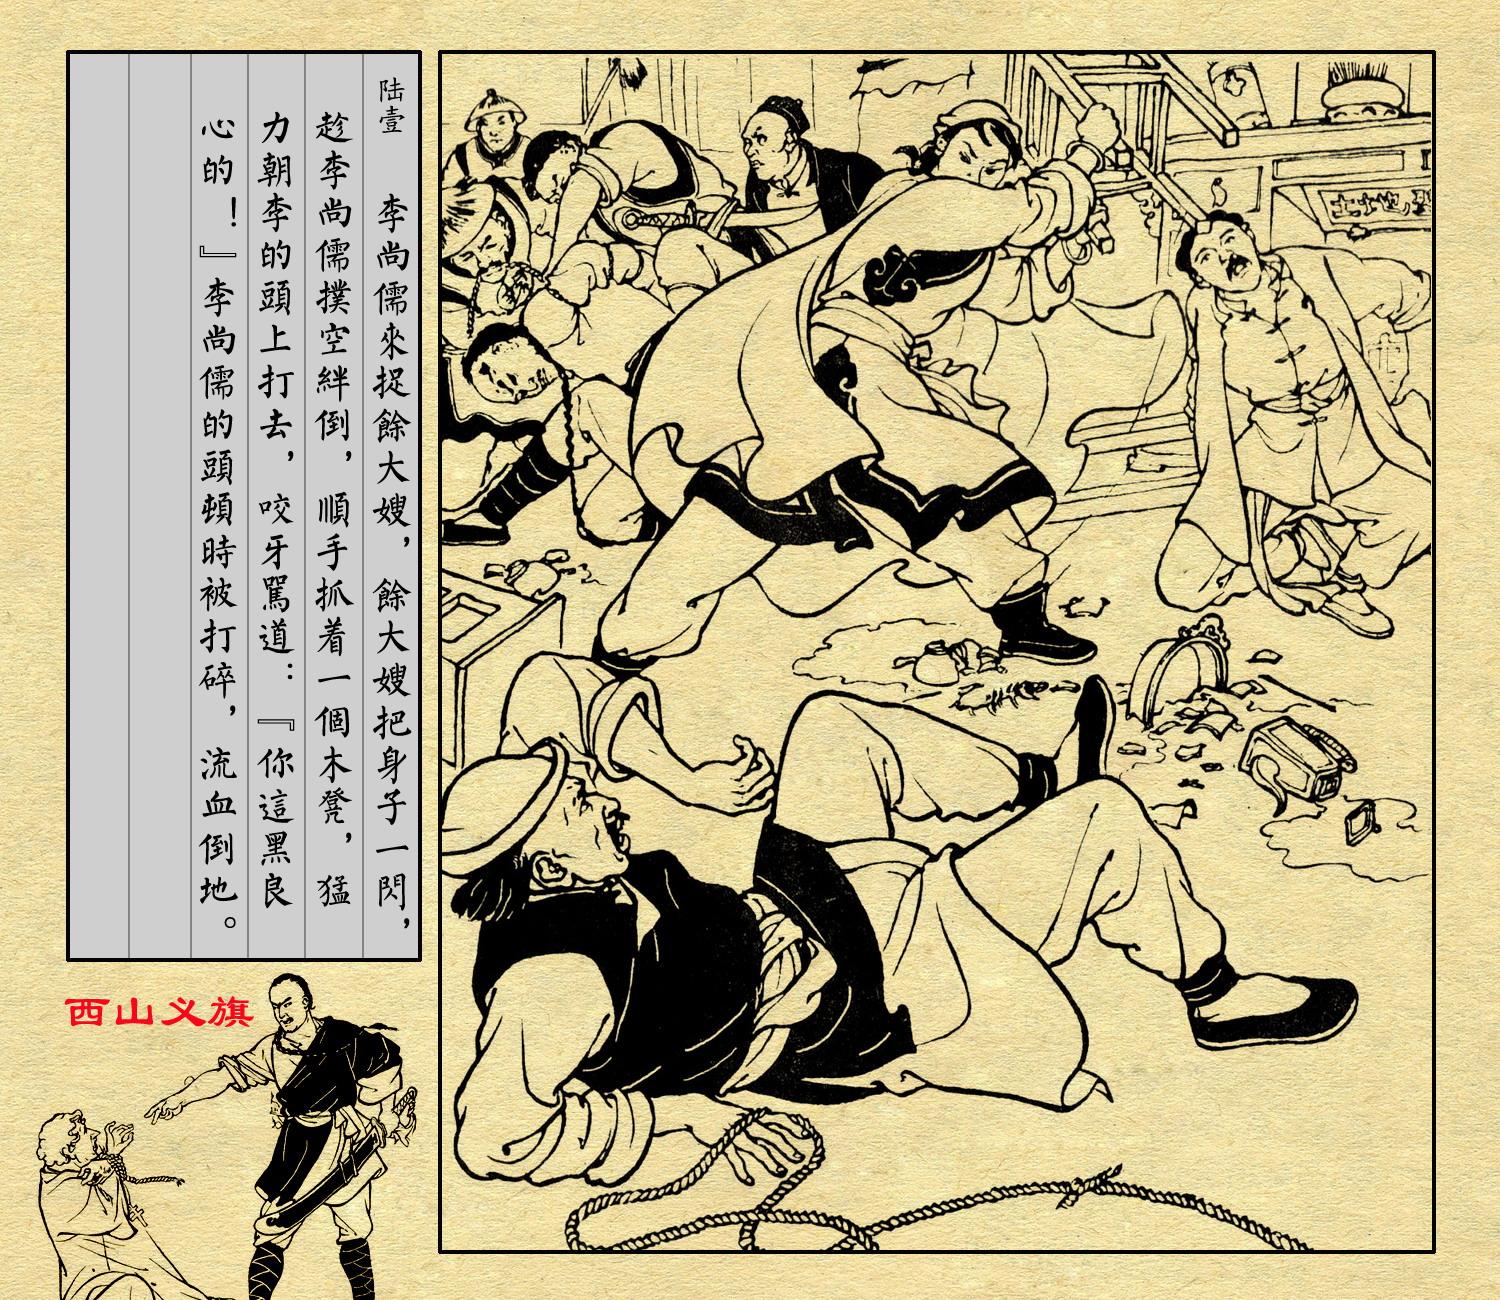 陆壹
李尚儒來捉餘大嫂，餘大嫂把身子一閃，
趁李尚儒撲空絆倒，順手抓着一個木凳，猛
力朝李的頭上打去，咬牙駡道：『你這黑良
心的！』李尚儒的頭頓時被打碎，流血倒地。
西山义旗